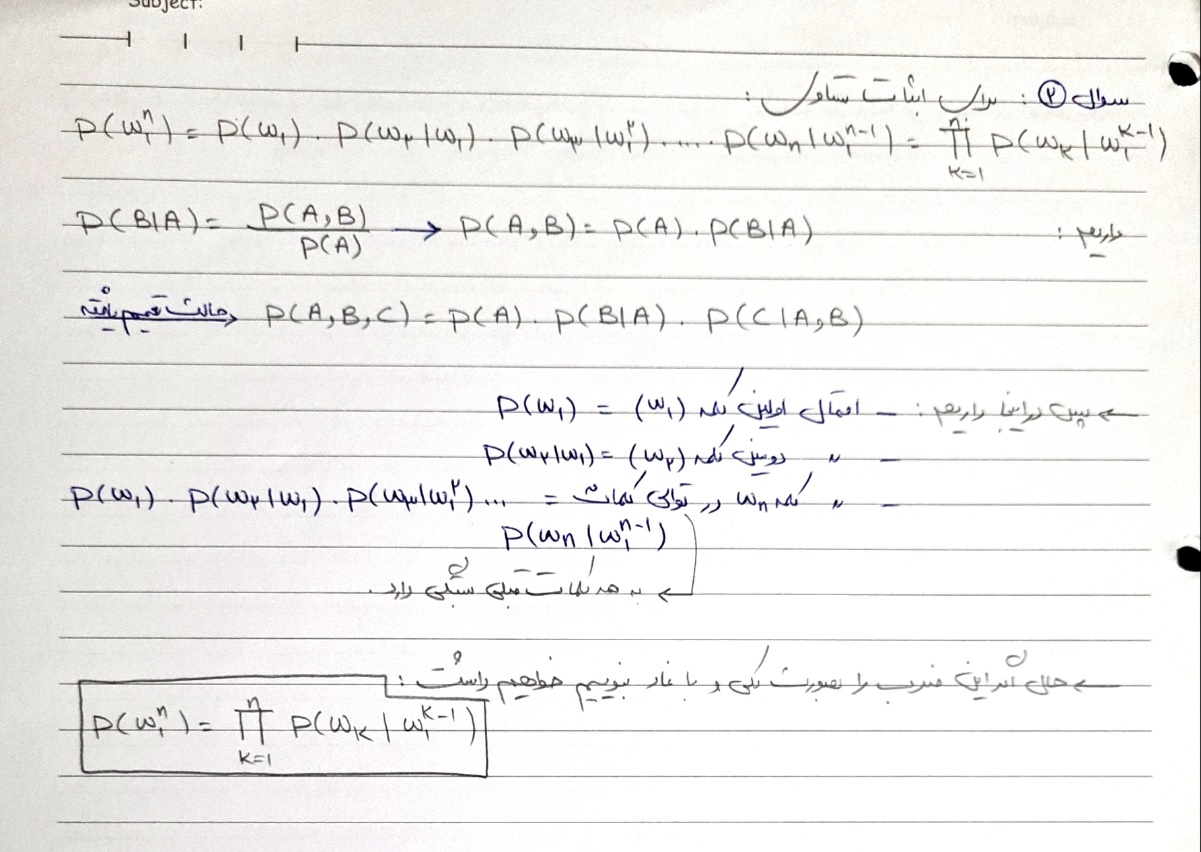 Subject:
سوال ۲ : برای اثبات تساوی :
P(w₁ⁿ) = P(w₁) . P(w۲|w₁) . P(w۳|w₁۲) ..... P(wn|w₁ⁿ⁻¹) = ∏ₖ₌₁ⁿ P(wK|w₁ᴷ⁻¹)
داریم : P(B|A) = P(A,B) / P(A) → P(A,B) = P(A) . P(B|A)
حالت تعمیم یافته → P(A,B,C) = P(A) . P(B|A) . P(C|A,B)
← پس در اینجا داریم : – احتمال اولین کلمه (w₁) = P(w₁)
– " دومین کلمه (w۲) = P(w۲|w₁)
– " کلمه wn در توالی کلمات = P(w₁) . P(w۲|w₁) . P(w۳|w₁۲) ...
P(wn|w₁ⁿ⁻¹)
← به همه کلمات قبلی بستگی دارد.
← حال اگر این ضرب را بصورت کلی و با نماد بنویسیم خواهیم داشت :
P(w₁ⁿ) = ∏ₖ₌₁ⁿ P(wK|w₁ᴷ⁻¹)